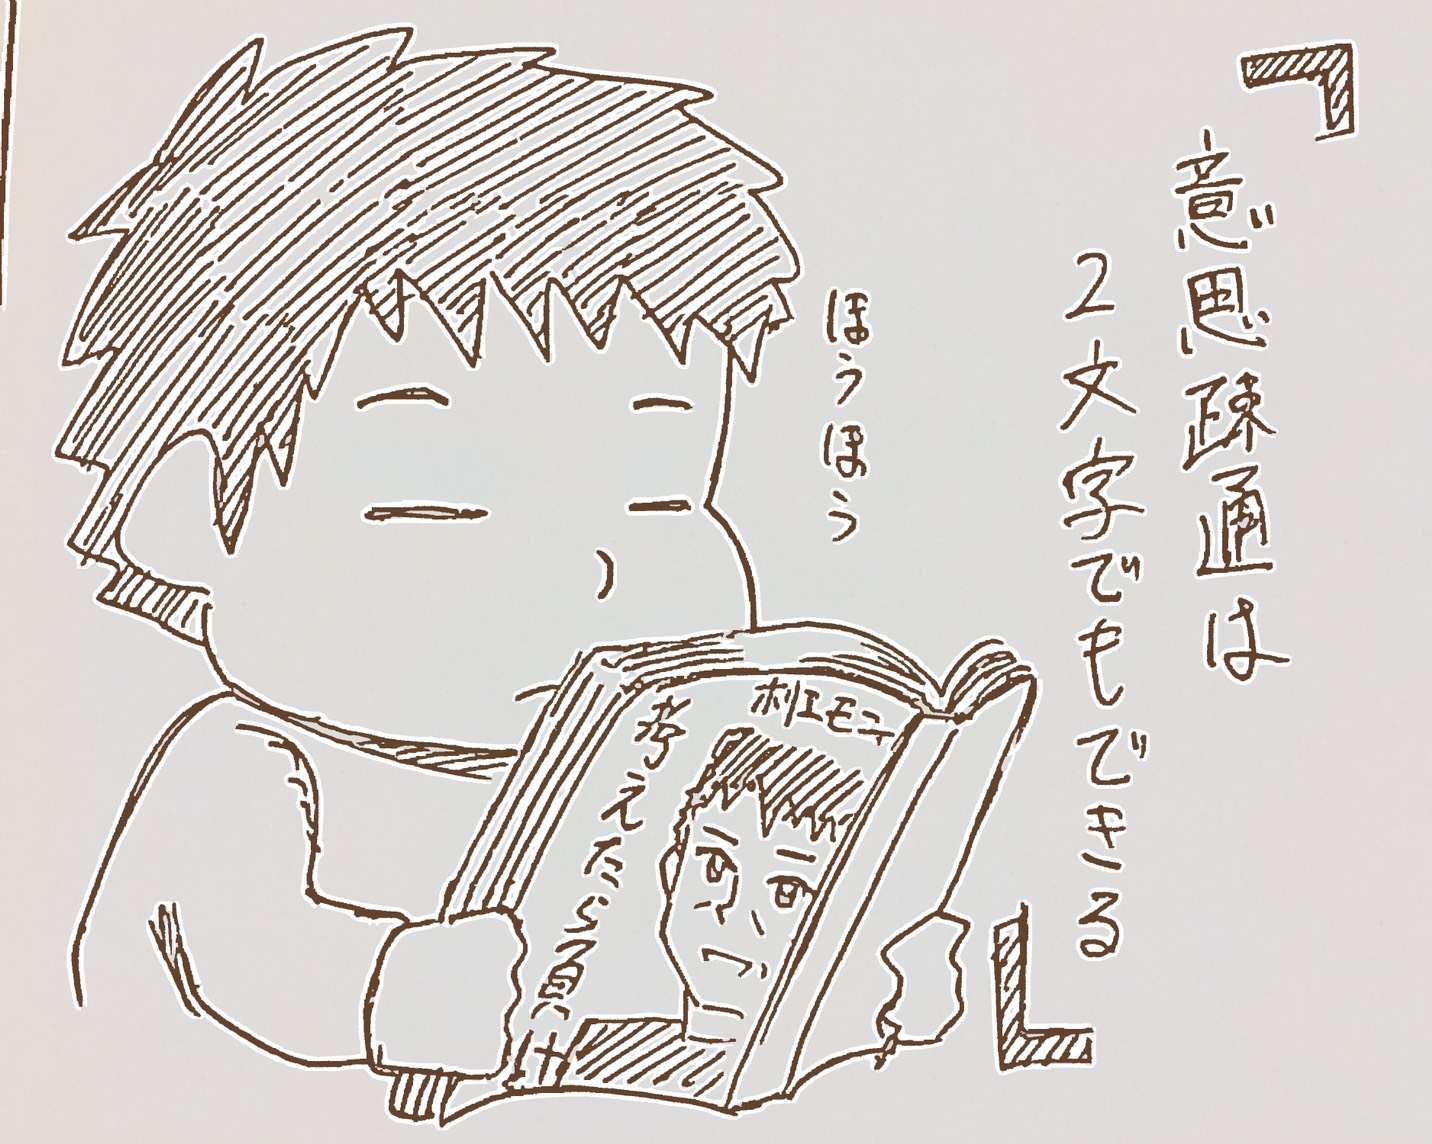 「意思疎通は
2文字でもできる」
ほうほう
ホリエモニ
考えたら負け